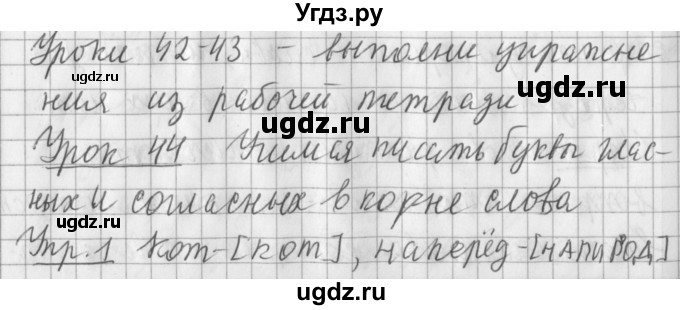 Угдз.ру
Уроки 42-43 - выполни упражне
ugdz.ru
ния из рабочей тетради
ugdz.ru
ugdz.ru
Урок 44 Учимся писать буквы глас-
ugdz.ru
ных и согласных в корне слова
ugdz.ru
ugdz.ru
Упр. 1 Кот-[кот], наперёд-[НАПИРОД]
ugdz.ru
ugdz.ru